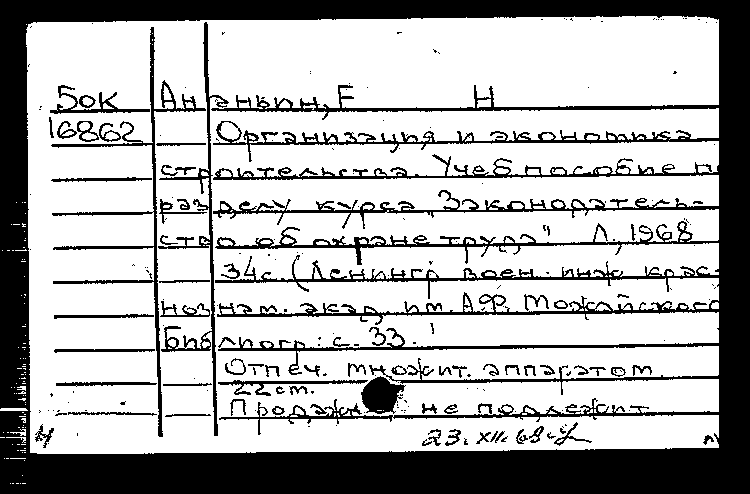 Бок Ананьин, Е Н
16862 Организация и экономика
строительства. Учеб. пособие по
разделу курса „Законодатель-
ство об охране труда" Л., 1968
34с. (Ленингр. воен. инж. крас-
нознам. акад. им. А.Ф. Можайского
Библиогр.: с. 33.
Отпеч. множит. аппаратом.
22 см.
Продаже не подлежит
23. XII. 68